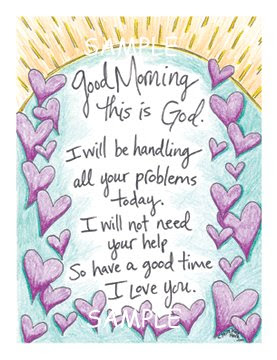 SAMPLE
good Morning
this is God.
I will be handling
all your problems
today.
I will not need
your help
So have a good time
I Love you.
SAMPLE